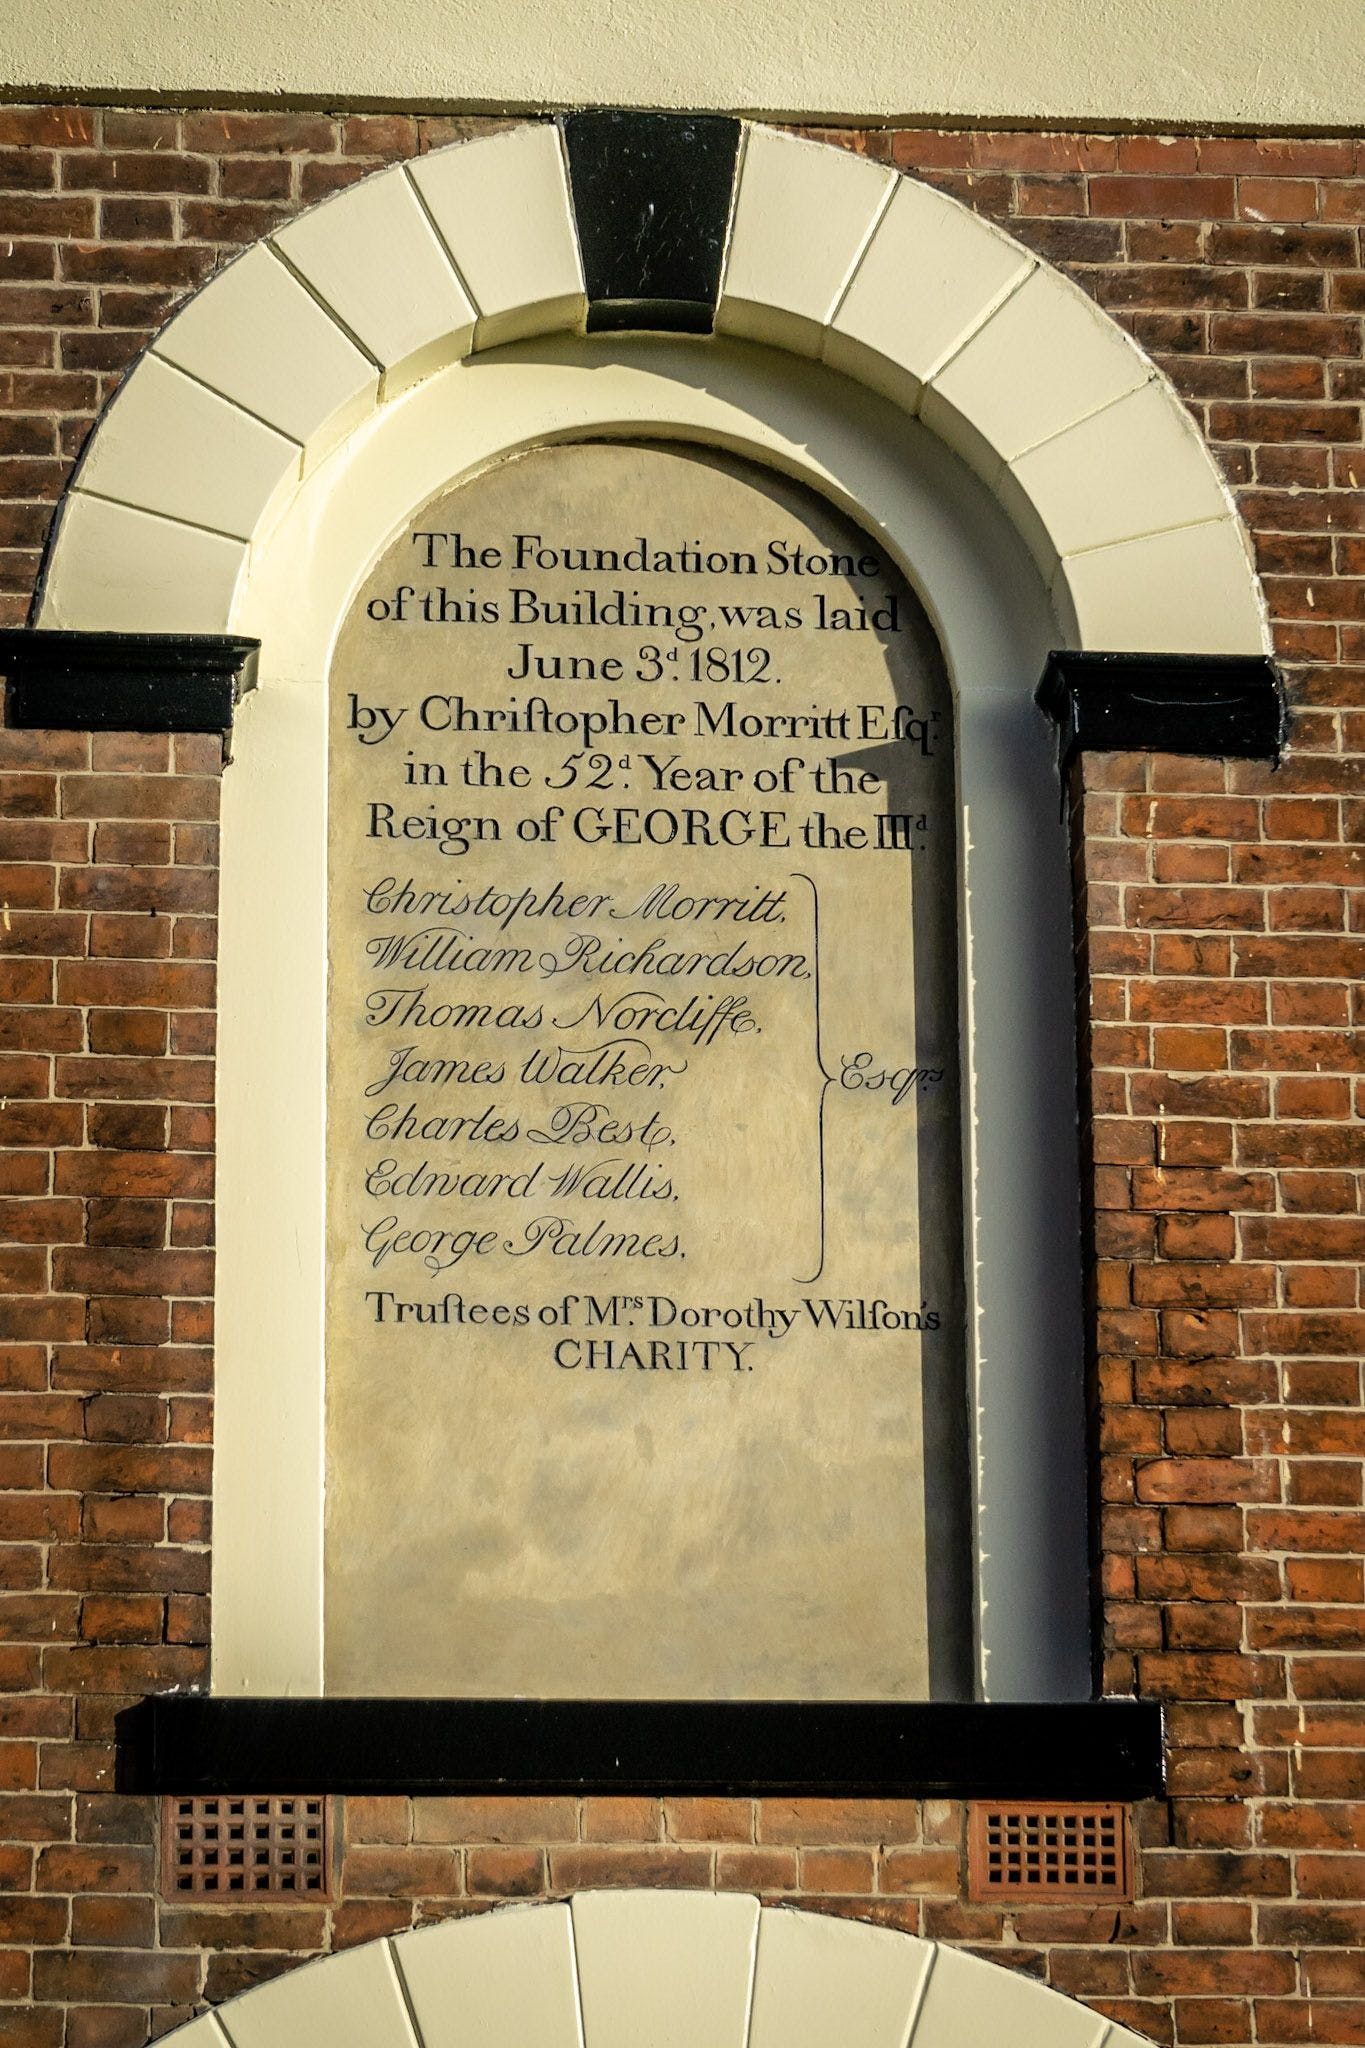 The Foundation Stone
of this Building, was laid
June 3ᵈ. 1812.
by Chriſtopher Morritt Eſqʳ.
in the 52ᵈ. Year of the
Reign of GEORGE the IIIᵈ.
Christopher Morritt,
William Richardson,
Thomas Norcliffe,
James Walker,
Charles Best,
Edward Wallis,
George Palmes,
Esqʳˢ.
Truſtees of Mʳˢ. Dorothy Wilſon's
CHARITY.